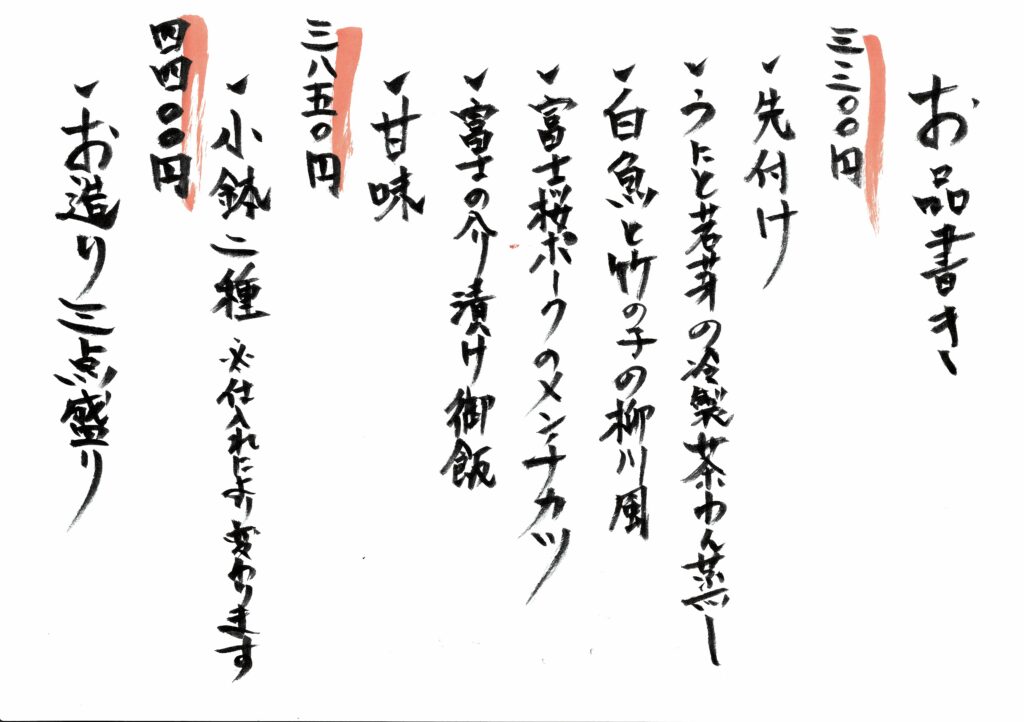 お品書き
三三〇〇円
先付け
うにと若芽の冷製茶わん蒸し
白魚と竹の子の柳川風
富士桜ポークのメンチカツ
富士の介り漬け御飯
甘味
三八五〇円
小鉢二種 ※仕入れにより変わります
四四〇〇円
お造り三点盛り